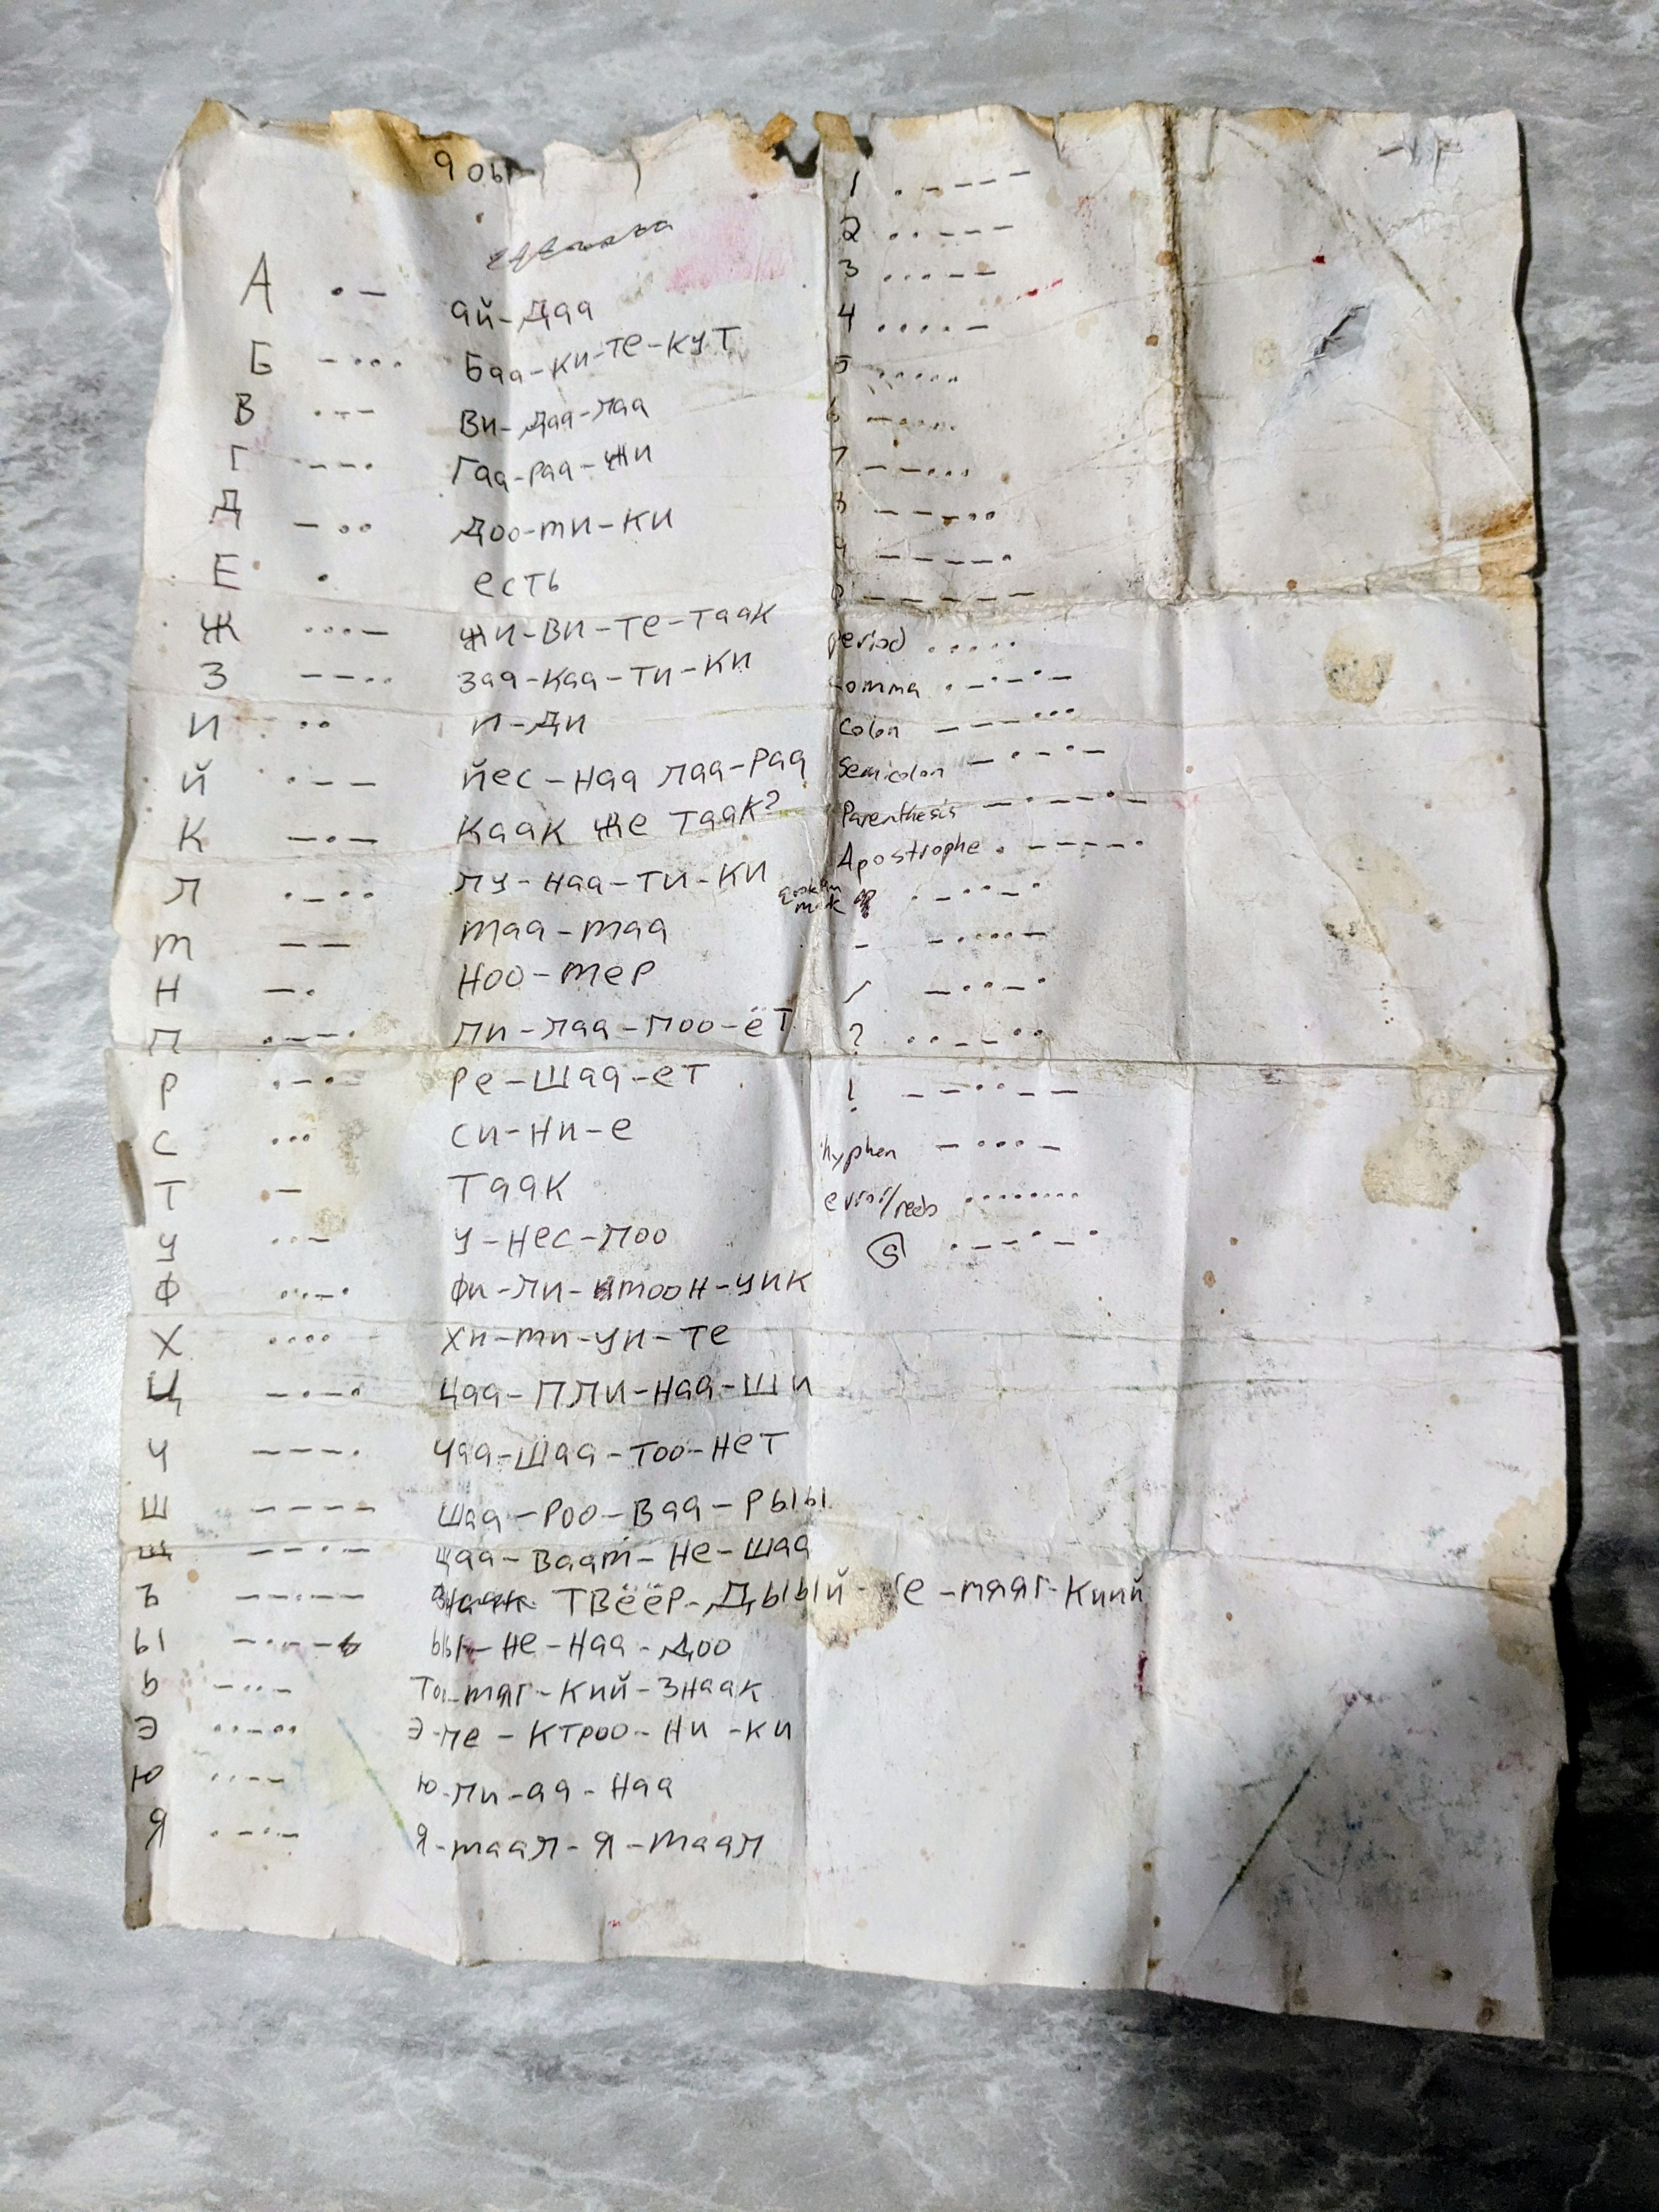 А • – ай-даа
Б – • • • Баа-ки-те-кут
В • – – Ви-лаа-лаа
Г – – • Гаа-раа-жи
Д – • • Доо-ми-ки
Е • есть
Ж • • • – Жи-ви-те-таак
З – – • • Заа-каа-ти-ки
И • • и-ди
Й • – – – йес-наа паа-раа
К – • – Каак же таак?
Л • – • • лу-наа-ти-ки
м – – маа-маа
Н – • Ноо-мер
П • – – • пи-лаа-поо-ёт
Р • – • Ре-шаа-ет
С • • • Си-ни-е
Т – Таак
У • • – У-нес-лоо
Ф • • – • Фи-ли-моон-чик
Х • • • • Хи-ми-чи-те
Ц – • – • Цаа-пли-наа-ши
Ч – – – • Чаа-шаа-тоо-нет
Ш – – – – Шаа-роо-ваа-рыы
Щ – – • – щаа-ваам-не-шаа
Ъ – – • – – Твёёр-дыый- е-мяяг-киий
Ы – • – – ыы-не-наа-доо
Ь – • • – То-мяг-кий-знаак
Э • • – • • Э-ле-ктроо-ни-ки
Ю • • – – Ю-ли-аа-наа
Я • – • – Я-маал-я-маал
1 • – – – –
2 • • – – –
3 • • • – –
4 • • • • –
5 • • • • •
6 – • • • •
7 – – • • •
8 – – – • •
9 – – – – •
0 – – – – –
period • • • • •
comma • – • – • –
Colon – – – • • •
Semicolon – • – • –
Parenthesis – • – – • –
Apostrophe • – – – – •
mark • – • • – •
- – • • • • –
/ – • • – •
? • • – – • •
! – – • • – –
hyphen – • • • –
• • • • • • • •
• – – • – •